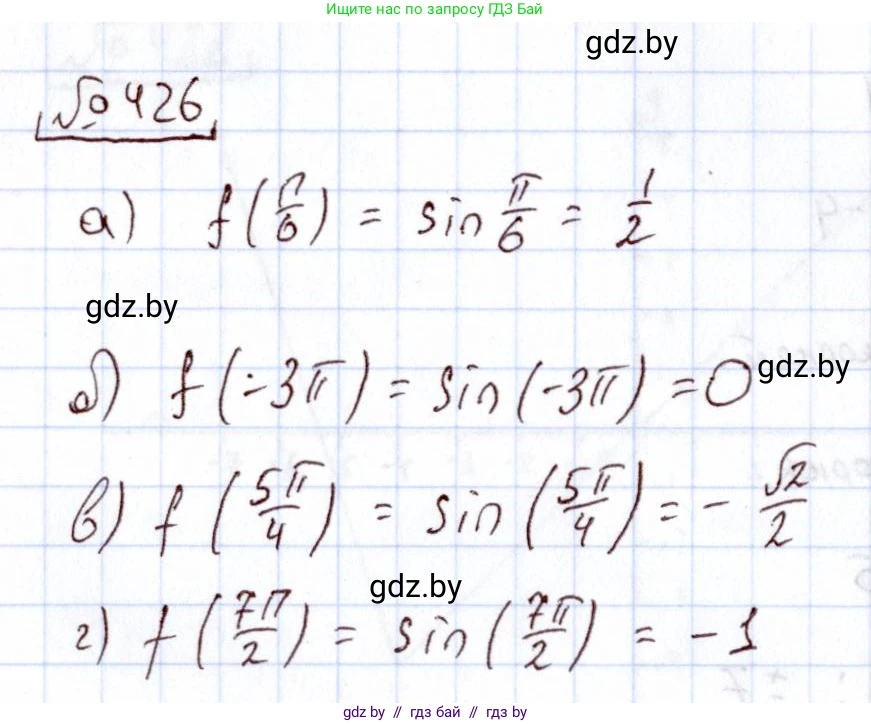 Ищите нас по запросу ГДЗ БАЙ
gdz.by
№ 426
а) f(π/6) = sin π/6 = 1/2
gdz.by
б) f(-3π) = sin(-3π) = 0
gdz.by
в) f(5π/4) = sin(5π/4) = - √2/2
gdz.by
г) f(7π/2) = sin(7π/2) = -1
gdz.by // гдз бай // gdz by